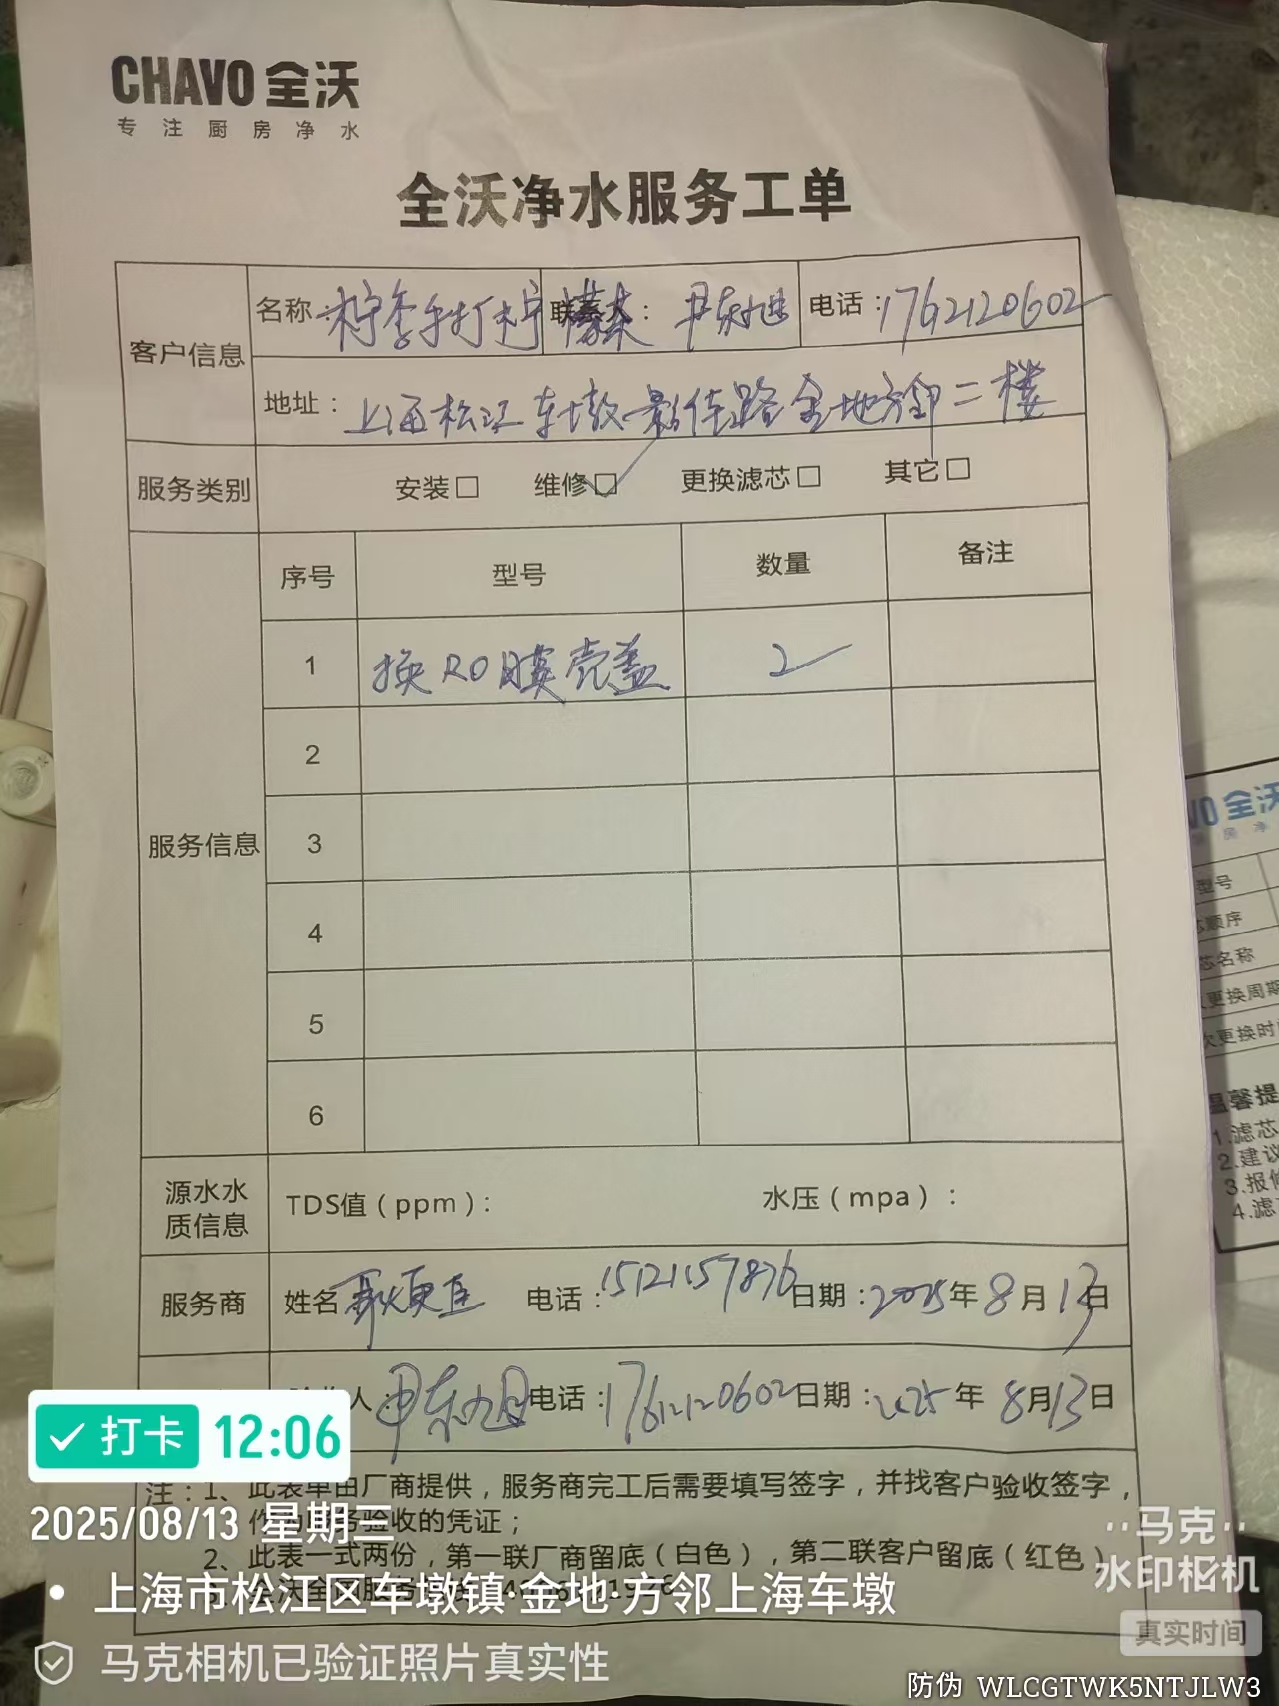 CHAVO 全沃
专注厨房净水
全沃净水服务工单
客户信息
名称：柠季手打柠 联系人： 电话：17621120602
地址：上海松江车墩影佳路金地方邻二楼
服务类别 安装□ 维修☑ 更换滤芯□ 其它□
服务信息
序号 型号 数量 备注
1 换RO膜壳盖 2
2
3
4
5
6
源水水质信息 TDS值（ppm）： 水压（mpa）：
服务商 姓名 电话：15121157876 日期：2025年8月13日
人： 电话：17621120602 日期：2025年8月13日
注：1、此表单由厂商提供，服务商完工后需要填写签字，并找客户验收签字，
作为服务验收的凭证；
2、此表一式两份，第一联厂商留底（白色），第二联客户留底（红色）
打卡 12:06
2025/08/13 星期三
上海市松江区车墩镇·金地·方邻上海车墩
马克相机已验证照片真实性
马克
水印相机
真实时间
防伪 WLCGTWK5NTJLW3
VO 全沃
房 净
型号
芯顺序
芯名称
更换周期
次更换时
温馨提
1.滤芯
2.建议
3.报修
4.滤